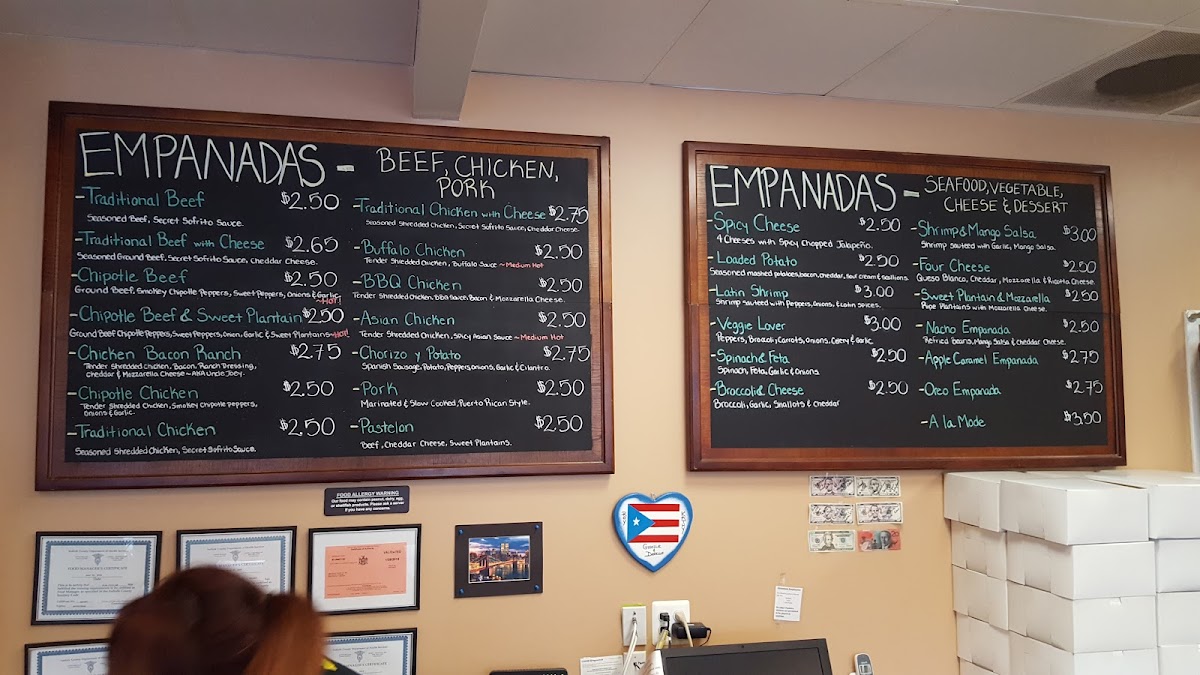 EMPANADAS - BEEF, CHICKEN,
PORK
-Traditional Beef $2.50
Seasoned Beef, Secret Sofrito Sauce.
-Traditional Beef with Cheese $2.65
Seasoned Ground Beef, Secret Sofrito Sauce, Cheddar Cheese.
-Chipotle Beef $2.50
Ground Beef, Smokey Chipotle Peppers, Sweet Peppers, Onions & Garlic
~HOT!
-Chipotle Beef & Sweet Plantain $2.50
Ground Beef Chipotle Peppers, Sweet Peppers, Onion, Garlic & Sweet Plantains ~HOT!
-Chicken Bacon Ranch $2.75
Tender Shredded Chicken, Bacon, Ranch Dressing,
Cheddar & Mozzarella Cheese ~ AKA Uncle Joey.
-Chipotle Chicken $2.50
Tender Shredded Chicken, Smokey Chipotle Peppers,
Onions & Garlic.
-Traditional Chicken $2.50
Seasoned Shredded Chicken, Secret Sofrito Sauce.
-Traditional Chicken with Cheese $2.75
Seasoned Shredded Chicken, Secret Sofrito Sauce, Cheddar Cheese.
-Buffalo Chicken $2.50
Tender Shredded Chicken, Buffalo Sauce ~ Medium Hot
-BBQ Chicken $2.50
Tender Shredded Chicken, BBQ Sauce, Bacon & Mozzarella Cheese.
-Asian Chicken $2.50
Tender Shredded Chicken, Spicy Asian Sauce ~ Medium Hot
-Chorizo y Potato $2.75
Spanish Sausage, Potato, Peppers, Onions, Garlic & Cilantro.
-Pork $2.50
Marinated & Slow Cooked, Puerto Rican Style.
-Pastelon $2.50
Beef, Cheddar Cheese, Sweet Plantains.
EMPANADAS - SEAFOOD, VEGETABLE,
CHEESE & DESSERT
-Spicy Cheese $2.50
4 Cheeses with Spicy Chopped Jalapeño.
-Loaded Potato $2.50
Seasoned mashed potatoes, bacon, cheddar, sour cream & scallions.
-Latin Shrimp $3.00
Shrimp sauteed with Peppers, Onions, & Latin Spices.
-Veggie Lover $3.00
Peppers, Broccoli, Carrots, Onions, Celery & Garlic.
-Spinach & Feta $2.50
Spinach, Feta, Garlic & Onions.
-Broccoli & Cheese $2.50
Broccoli, Garlic, Shallots & Cheddar
-Shrimp & Mango Salsa $3.00
Shrimp sauteed with Garlic, Mango Salsa.
-Four Cheese $2.50
Queso Blanco, Cheddar, Mozzarella & Ricotta Cheese.
-Sweet Plantain & Mozzarella $2.50
Ripe Plantains with Mozzarella Cheese.
-Nacho Empanada $2.50
Refried Beans, Mango Salsa & Cheddar Cheese.
-Apple Caramel Empanada $2.75
-Oreo Empanada $2.75
-A la Mode $3.50
FOOD ALLERGY WARNING
Our food may contain peanut, dairy, egg,
or shellfish products. Please ask a server
if you have any concerns.